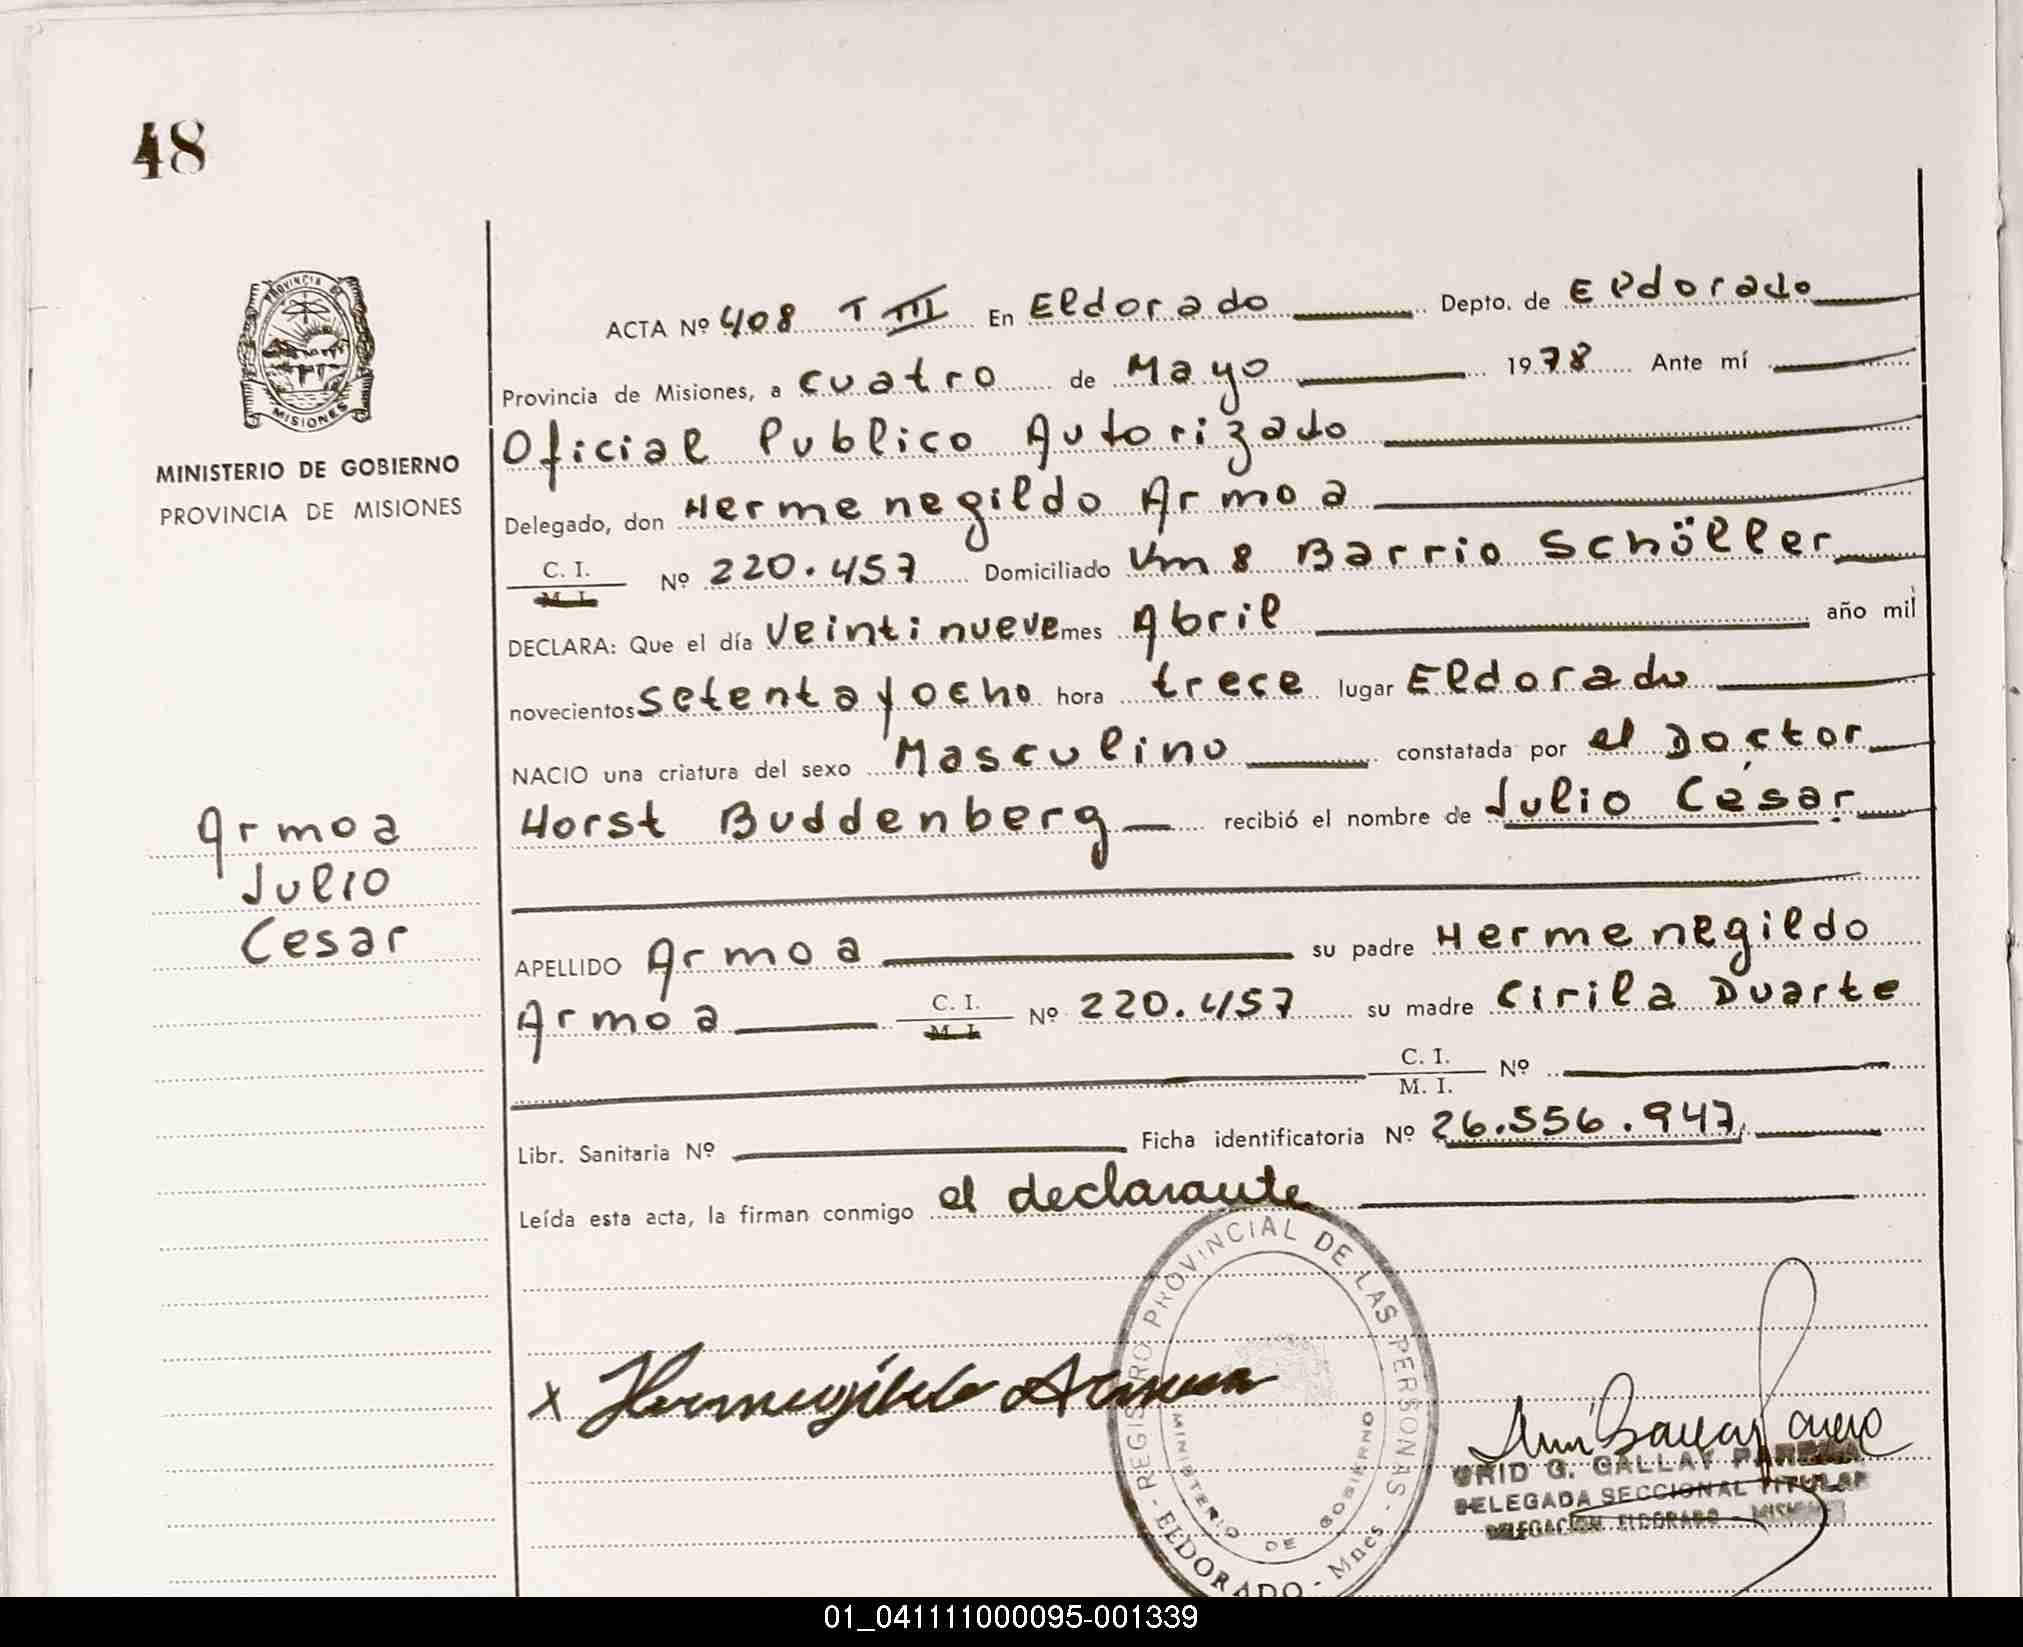 48
PROVINCIA DE
MISIONES
MINISTERIO DE GOBIERNO
PROVINCIA DE MISIONES
Armoa
Julio
Cesar
ACTA Nº 408 T III En Eldorado Depto. de Eldorado
Provincia de Misiones, a cuatro de Mayo 1978 Ante mí
Oficial Publico Autorizado
Delegado, don Hermenegildo Armoa
C. I.
M. I. Nº 220.457 Domiciliado Km 8 Barrio Schöller
DECLARA: Que el día Veintinueve mes Abril año mil
novecientos setenta y ocho hora trece lugar Eldorado
NACIO una criatura del sexo Masculino constatada por el Doctor
Horst Buddenberg recibió el nombre de Julio César
APELLIDO Armoa su padre Hermenegildo
Armoa C. I. Nº 220.457 su madre Cirila Duarte
M. I.
C. I. Nº
M. I.
Libr. Sanitaria Nº Ficha identificatoria Nº 26.556.947
Leída esta acta, la firman conmigo el declarante
x Hermenegildo Armoa
REGISTRO PROVINCIAL DE LAS PERSONAS
MINISTERIO DE GOBIERNO
- ELDORADO - Mnes -
G. GALLAY
DELEGADA SECCIONAL TITULAR
DELEGACION ELDORADO -
01_041111000095-001339